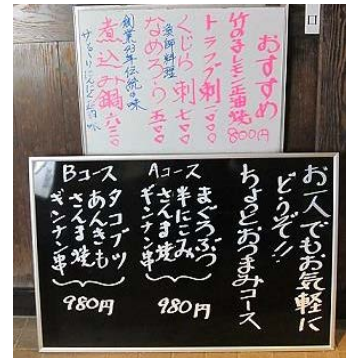 おすすめ
竹の子レモン正油焼
800円
トラフブ刺
くじら刺 七〇〇
漁師料理
なめろう 五〇〇
創業43年伝統の味
煮込み鍋 六三〇
お一人でもお気軽に
どうぞ!!
ちょっとおつまみコース
Aコース
まぐろぶつ
半にこみ
さんま焼
ギンナン串
980円
Bコース
タコブツ
あんきも
さんま焼
ギンナン串
980円